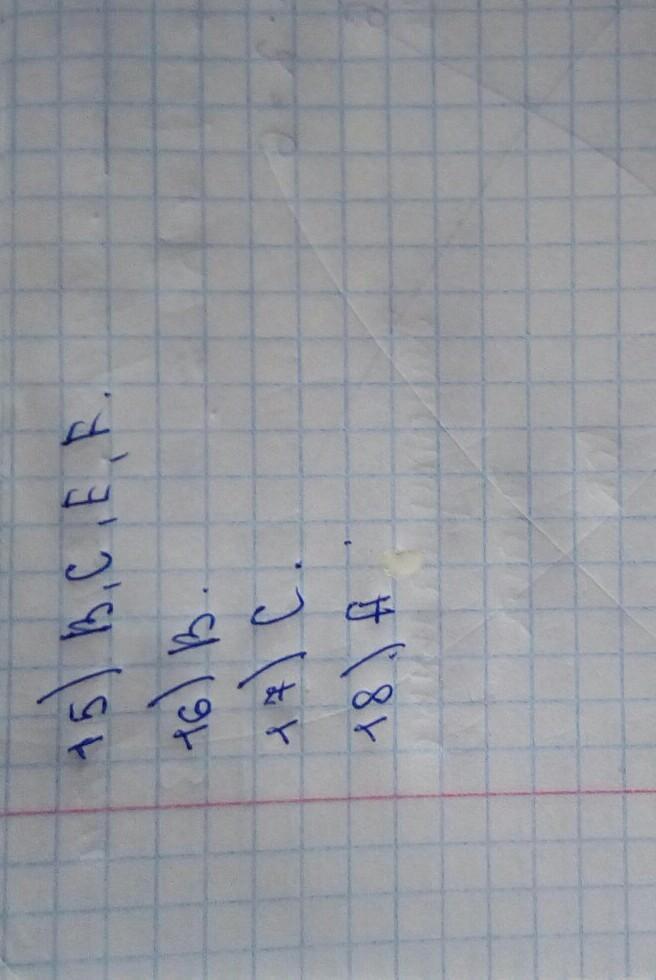 15) B, C, E, F.
16) B.
17) C.
18) A.